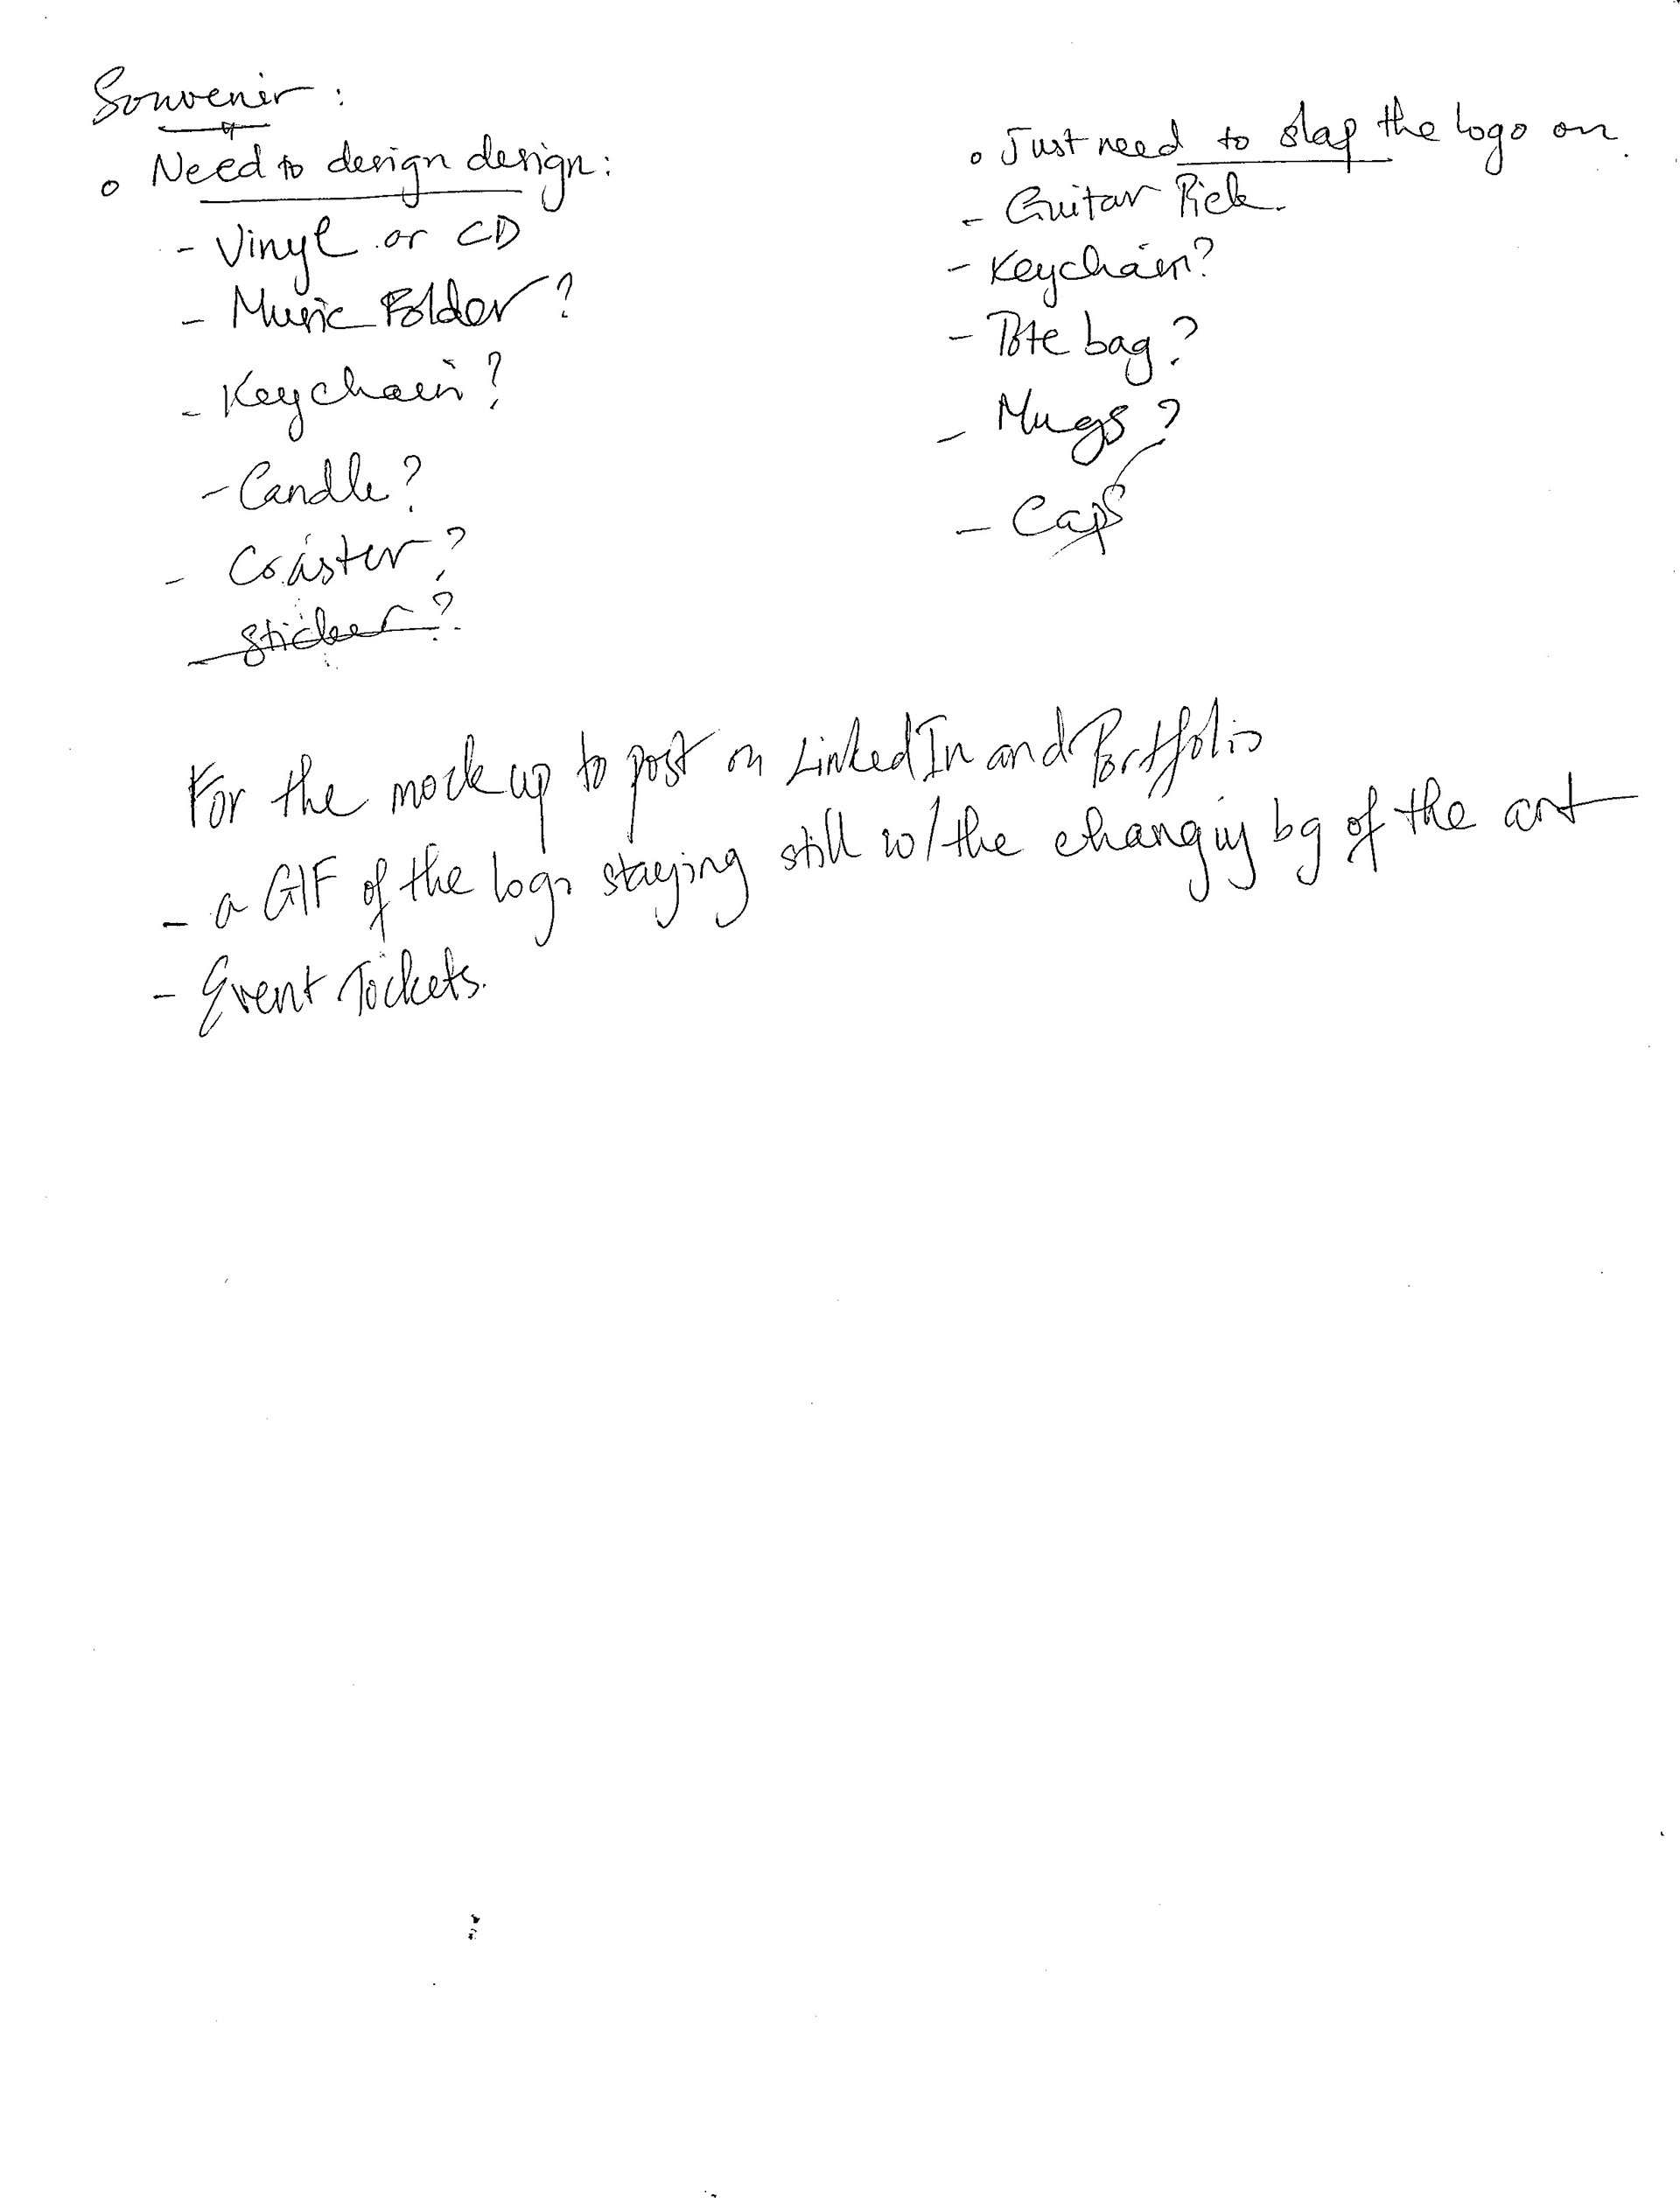 Souvenir:
o Need to design design:
- Vinyl or CD
- Music Folder?
- Keychain?
- Candle?
- Coaster?
- Sticker?
o Just need to slap the logo on.
- Guitar Pick.
- Keychain?
- Tote bag?
- Mugs?
- Caps
For the mock up to post on LinkedIn and Portfolio
- a GIF of the logo staying still w/ the changing bg of the art
- Event Tickets.